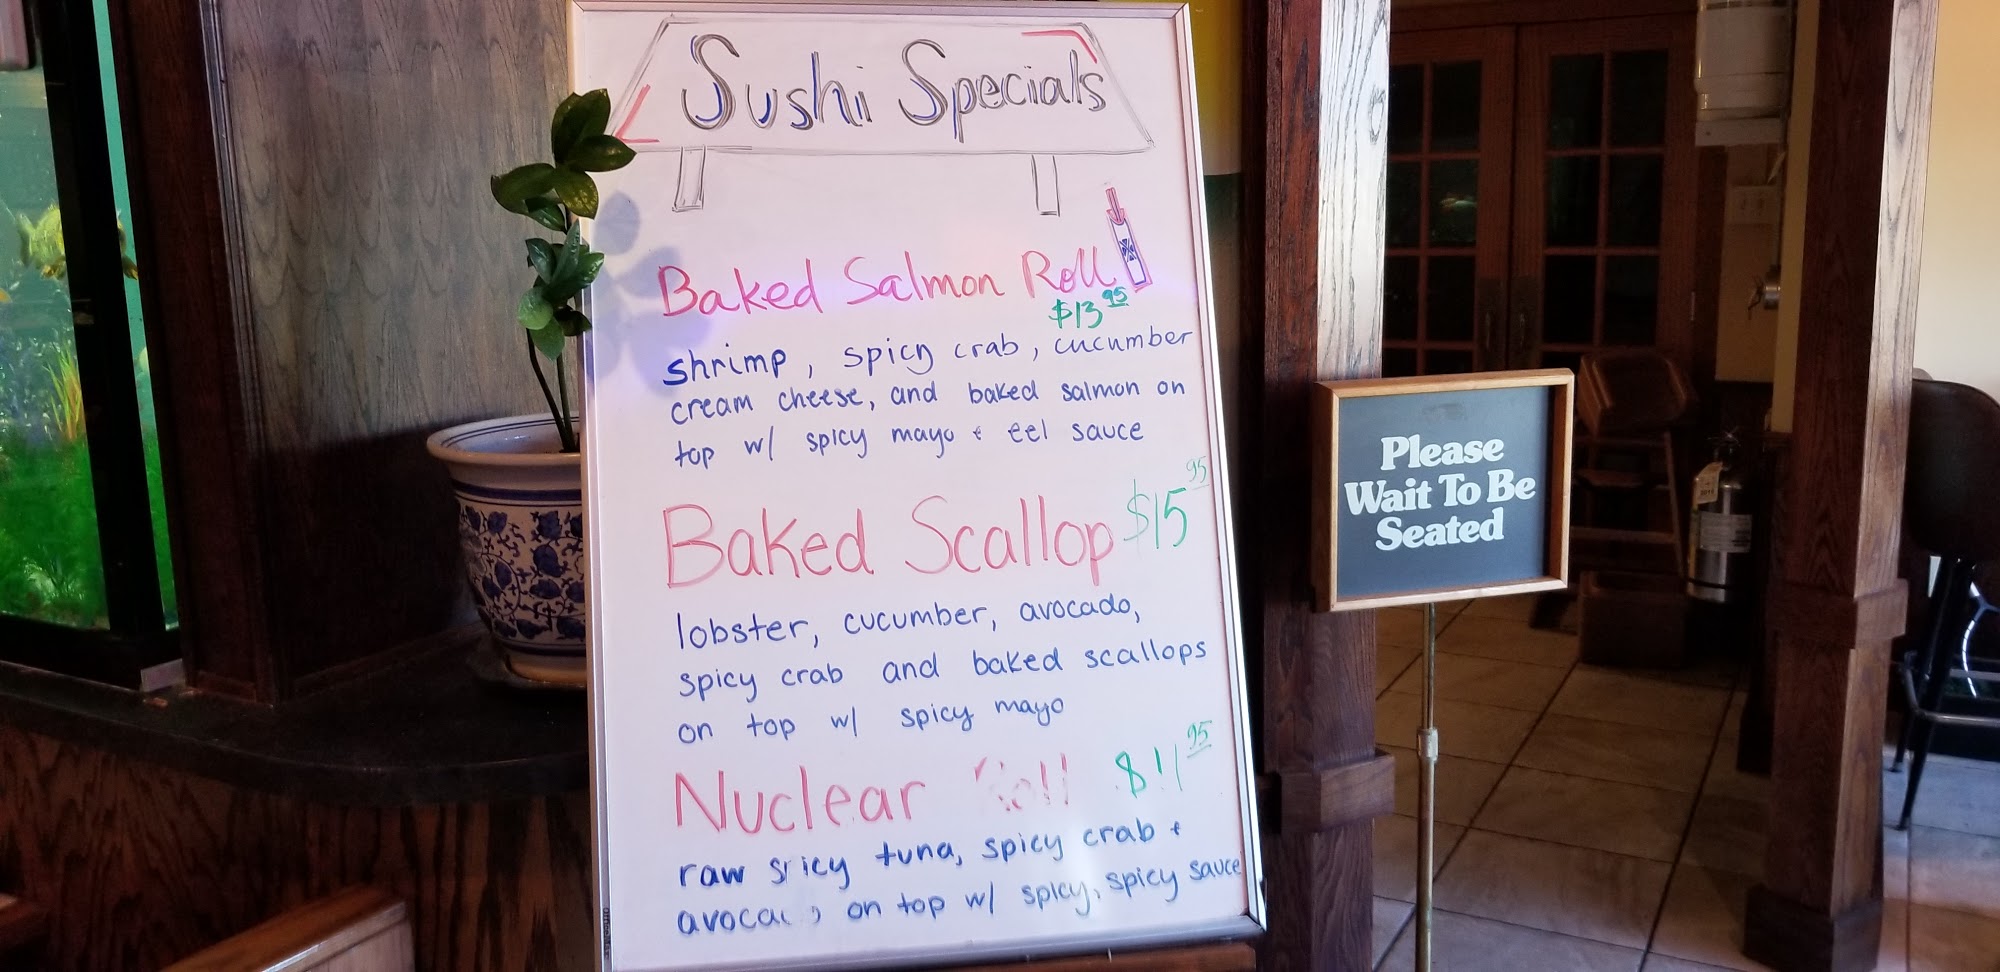 Sushi Specials
Baked Salmon Roll
$13.95
shrimp, spicy crab, cucumber
cream cheese, and baked salmon on
top w/ spicy mayo + eel sauce
Baked Scallop $15.95
lobster, cucumber, avocado,
spicy crab and baked scallops
on top w/ spicy mayo
Nuclear Roll $11.95
raw spicy tuna, spicy crab +
on top w/ spicy, spicy sauce
Please
Wait To Be
Seated